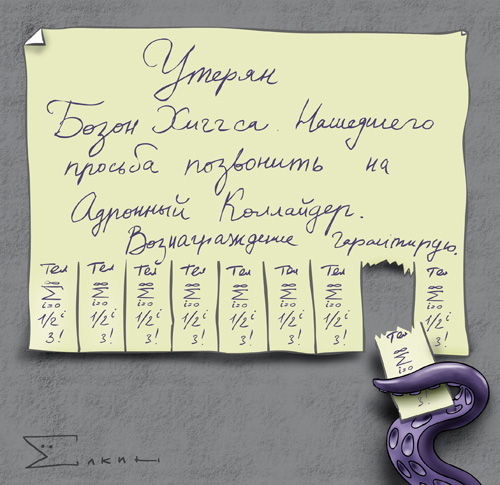 Утерян
Бозон Хиггса. Нашедшего
просьба позвонить на
Адронный Коллайдер.
Вознаграждение гарантирую.
Тел
∞
Σ
i=0
1/2ⁱ
3!
Тел
∞
Σ
i=0
1/2ⁱ
3!
Тел
∞
Σ
i=0
1/2ⁱ
3!
Тел
∞
Σ
i=0
1/2ⁱ
3!
Тел
∞
Σ
i=0
1/2ⁱ
3!
Тел
∞
Σ
i=0
1/2ⁱ
3!
Тел
∞
Σ
i=0
1/2ⁱ
3!
Тел
∞
Σ
i=0
3!
Тел
∞
Σ
i=0
1/2ⁱ
3!
Ёлкин